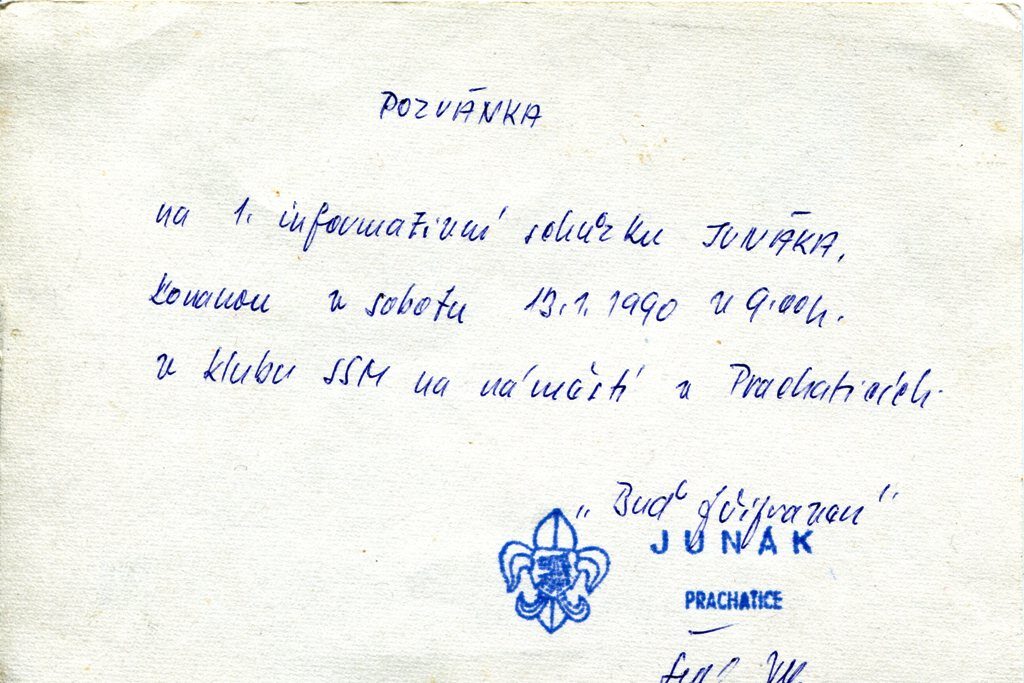 POZVÁNKA
na 1. informativní schůzku JUNÁKA,
konanou v sobotu 13.1.1990 v 9.00h.
v klubu SSM na náměstí v Prachaticích.
„Buď připraven"
JUNÁK
PRACHATICE